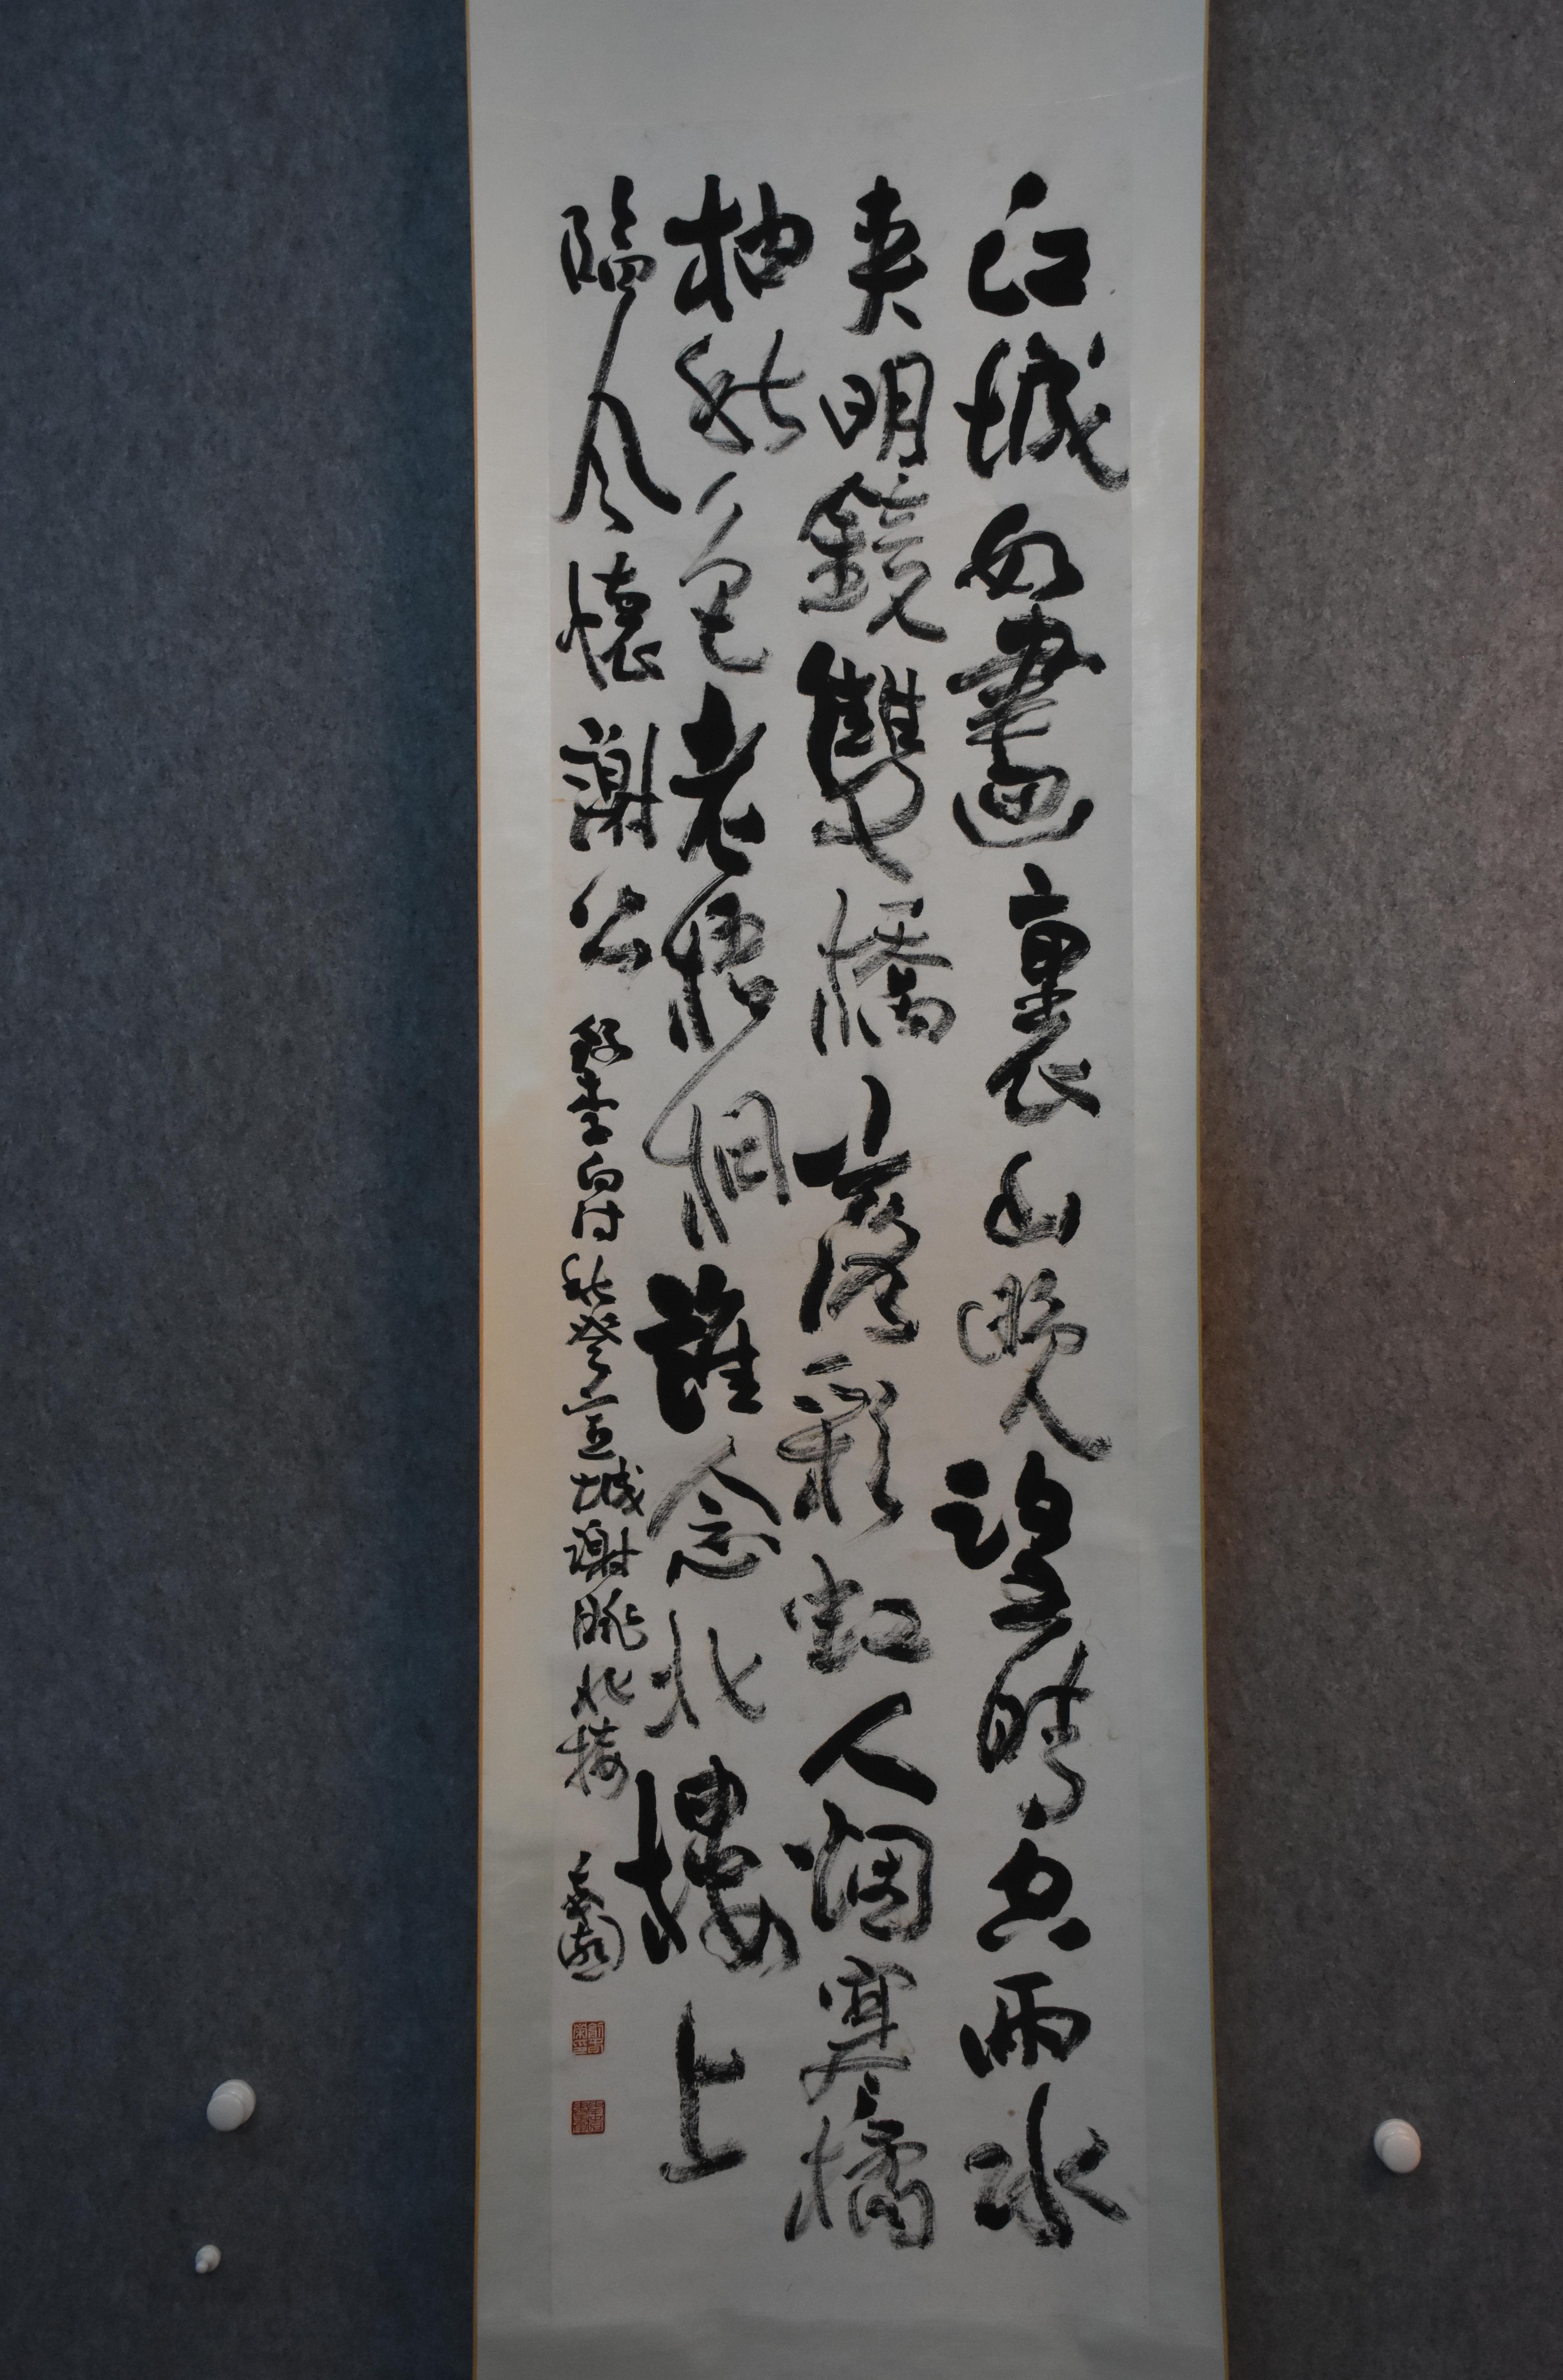 江城如畫裏山晚望晴空兩水
夾明鏡雙橋落彩虹人烟寒橘
柚秋色老梧桐誰念北樓上
臨風懷謝公 錄李白詩秋登宣城謝朓北樓